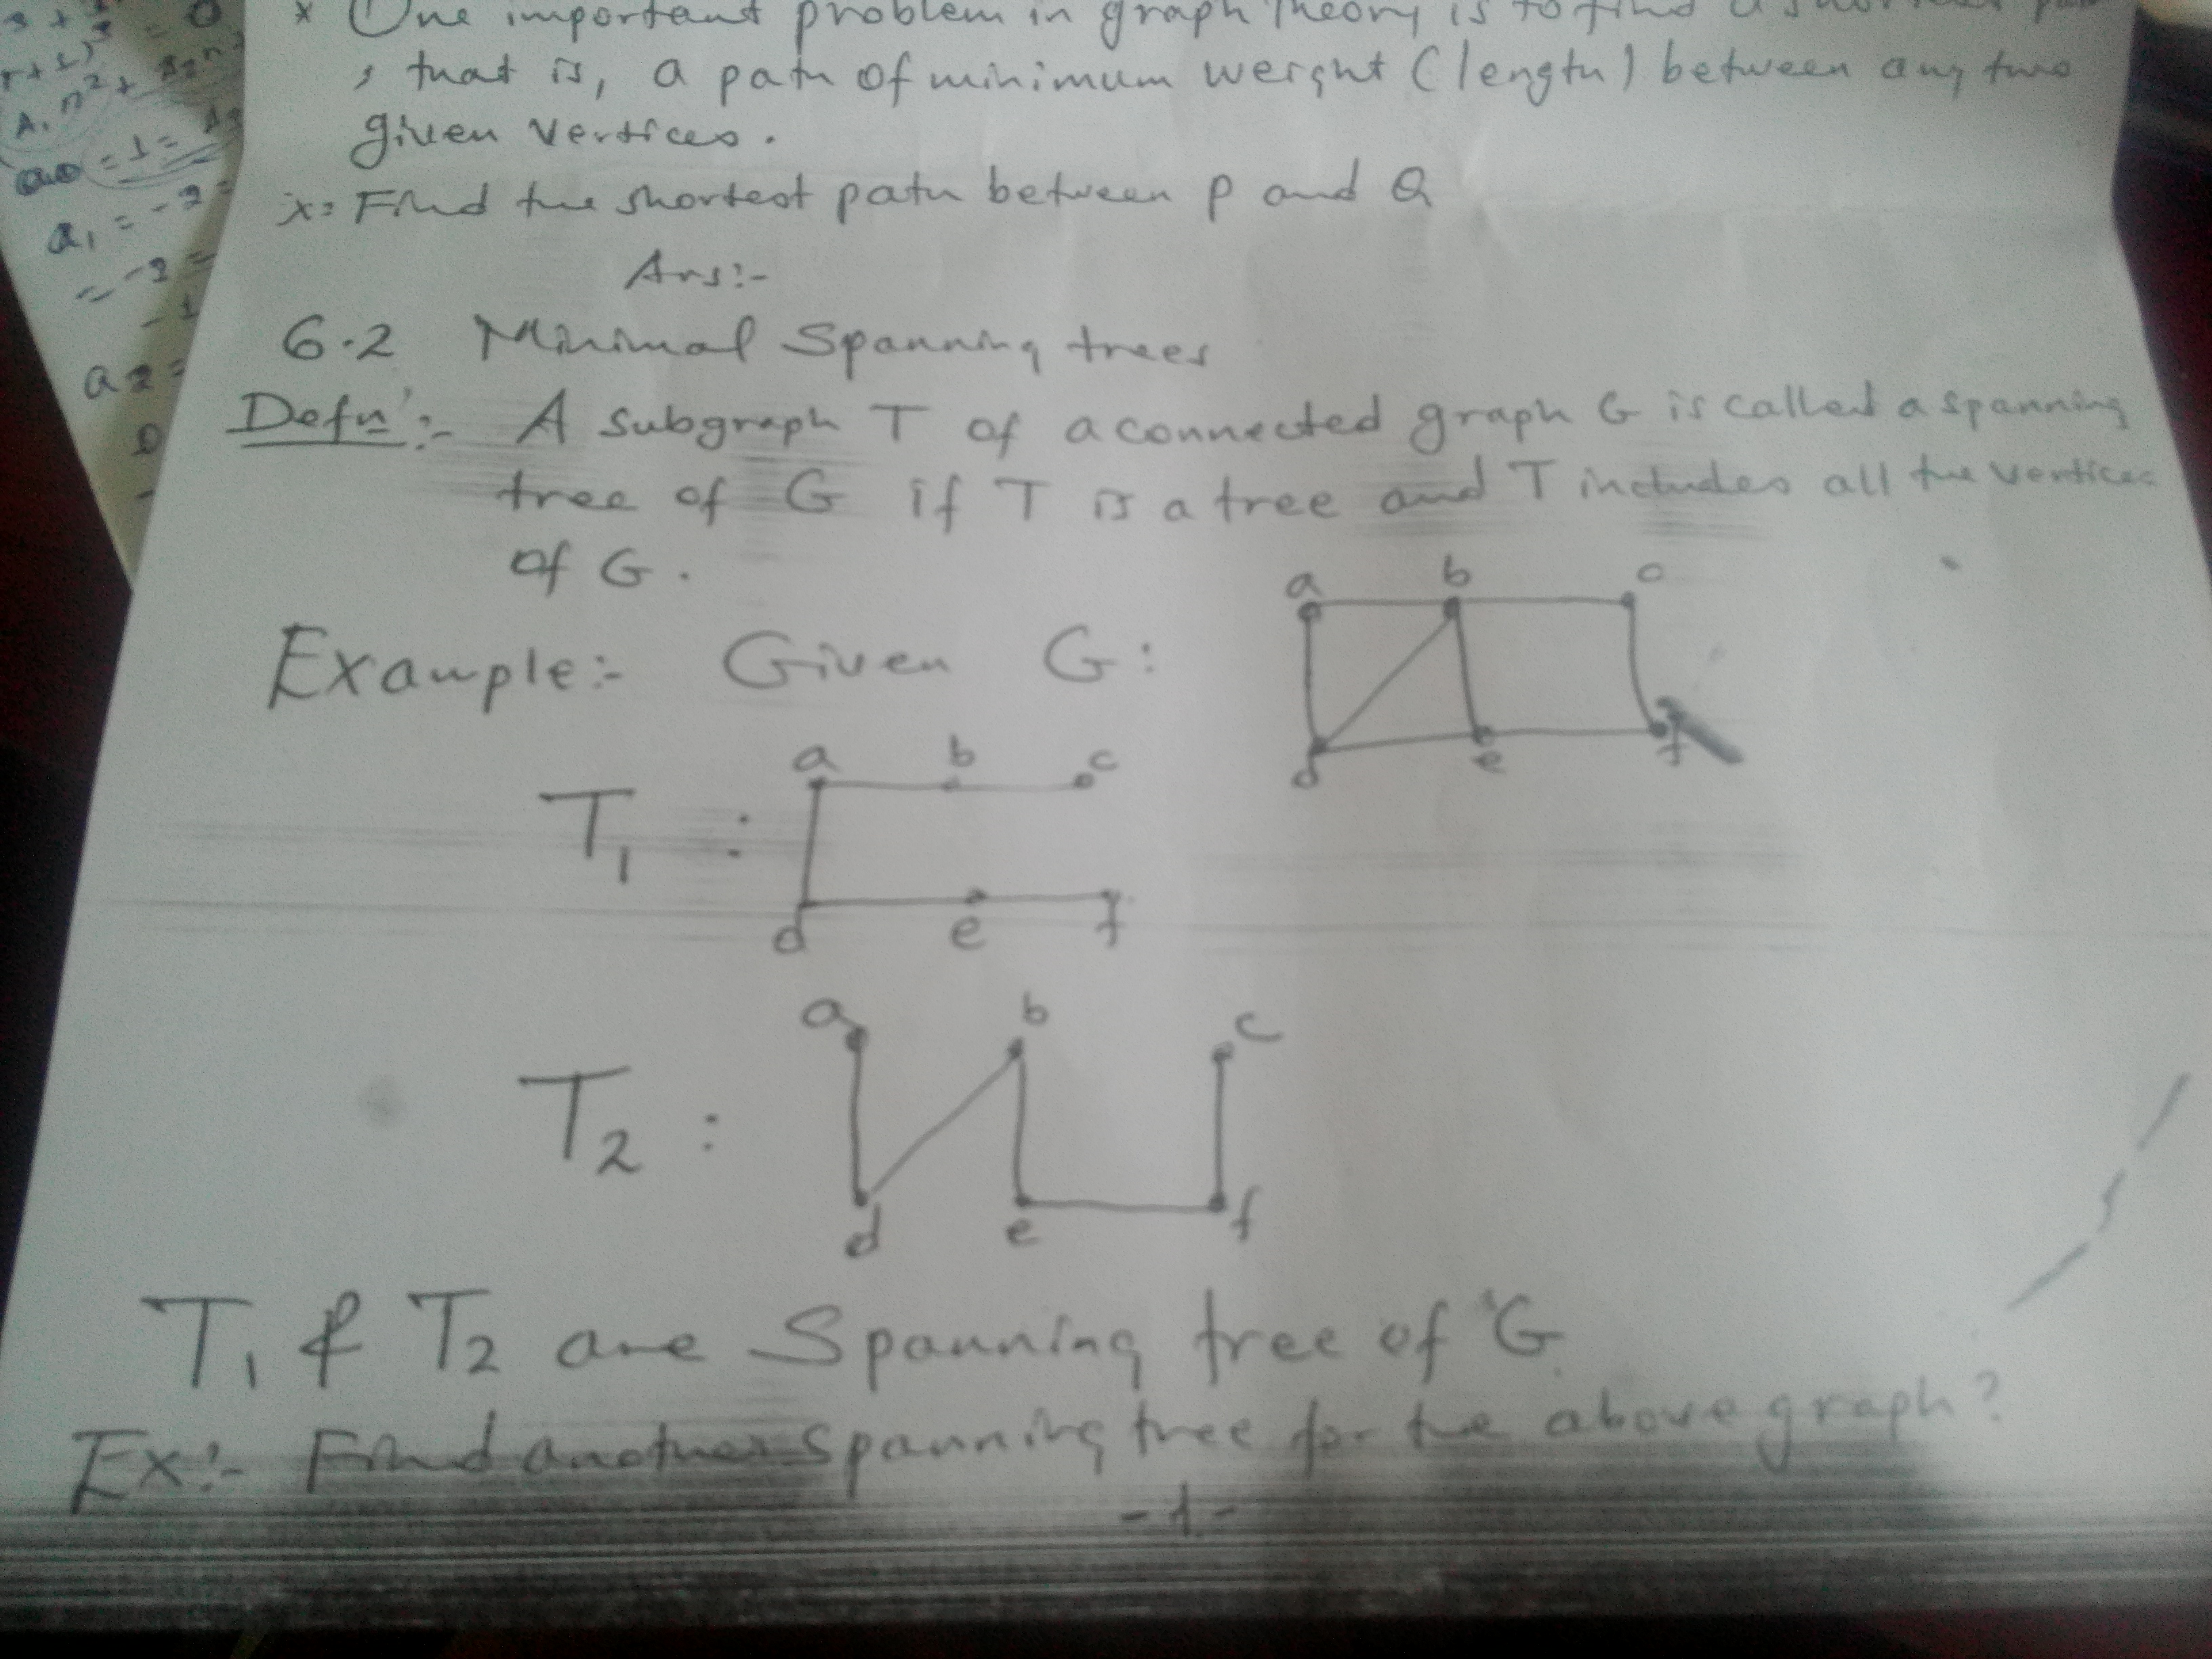 3 + 1 = 0
r + 1)
A1 n² + A2 n²
a0 = 1 =
a1 = -2 =
= -2 =
-1
a2 =
* One important problem in graph theory is to find a shortest
, that is, a path of minimum weight (length) between any two
given vertices.
x: Find the shortest path between P and Q
Ans:-
6.2 Minimal Spanning trees
Defn':- A subgraph T of a connected graph G is called a spanning
tree of G if T is a tree and T includes all the vertices
of G.
Example:- Given G:
a b c
d e f
T1 :
a b c
d e f
T2 :
a b c
d e f
T1 & T2 are Spanning tree of G
Ex:- Find another spanning tree for the above graph?
-1-